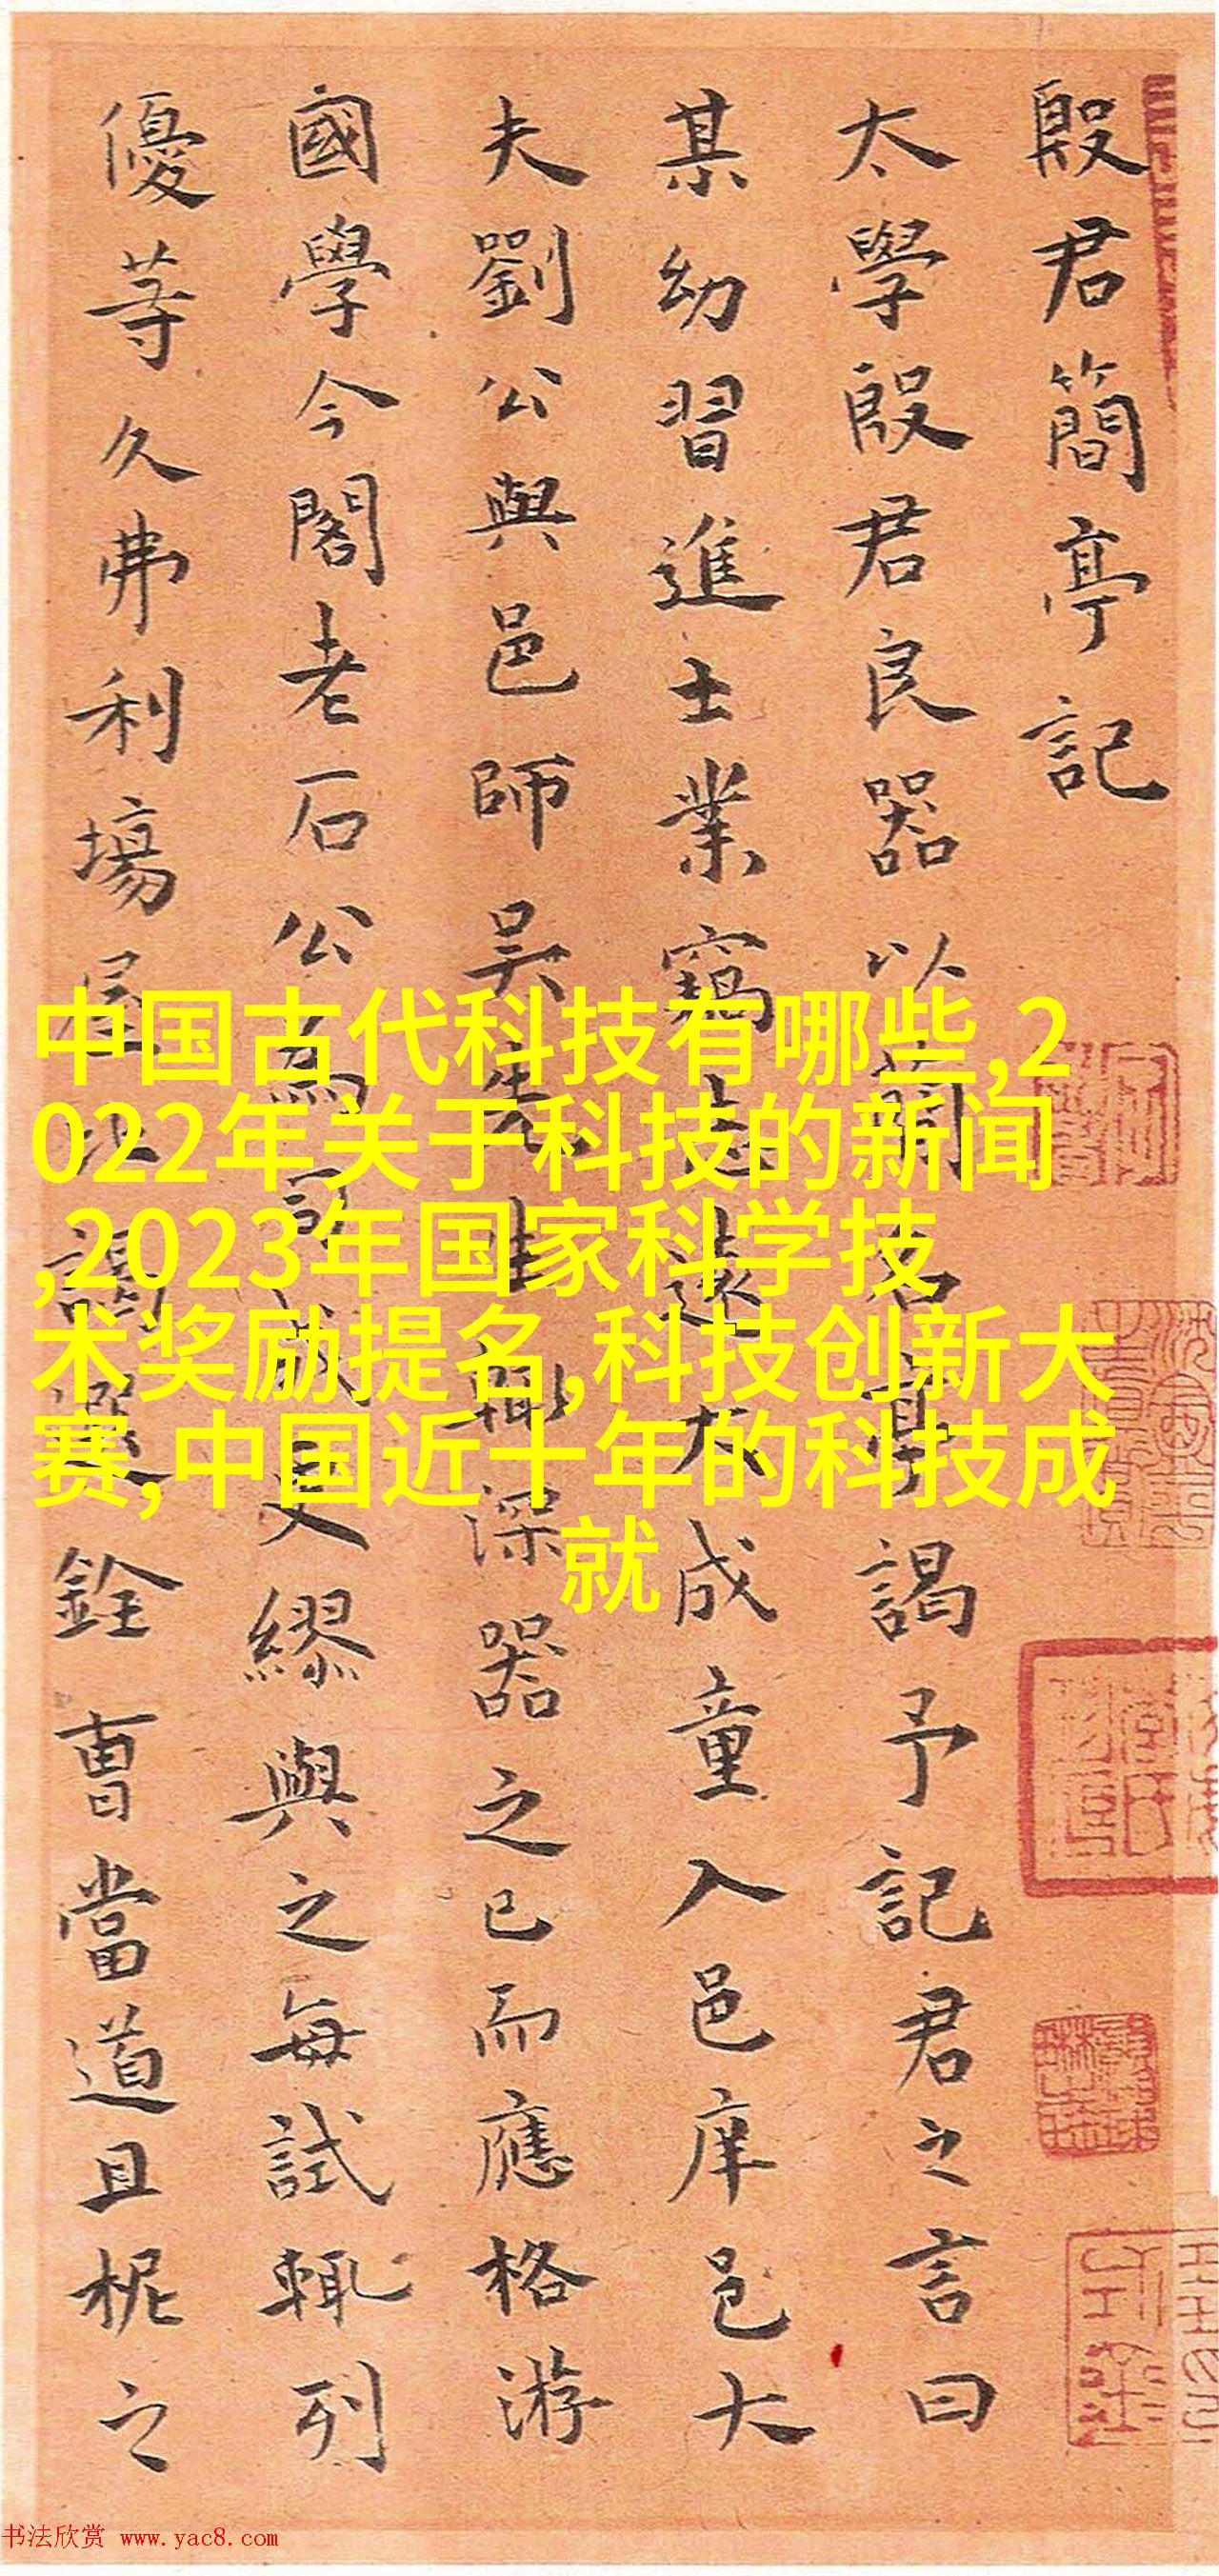 殷君簡亭記
太學殷君良器以簡名亭謁予記君之言曰
某幼習進士業竊志遠大成童入邑庠邑大
夫劉公與邑師吳先生輒深器之已而應格游
國學今閣老石公為司成又繆與之每試輒列
優等久弗利場屋上謁選銓曹當道且柅之
中国古代科技有哪些,2
022年关于科技的新闻
,2023年国家科学技
术奖励提名,科技创新大
赛,中国近十年的科技成
就
书法欣赏 www.yac8.com